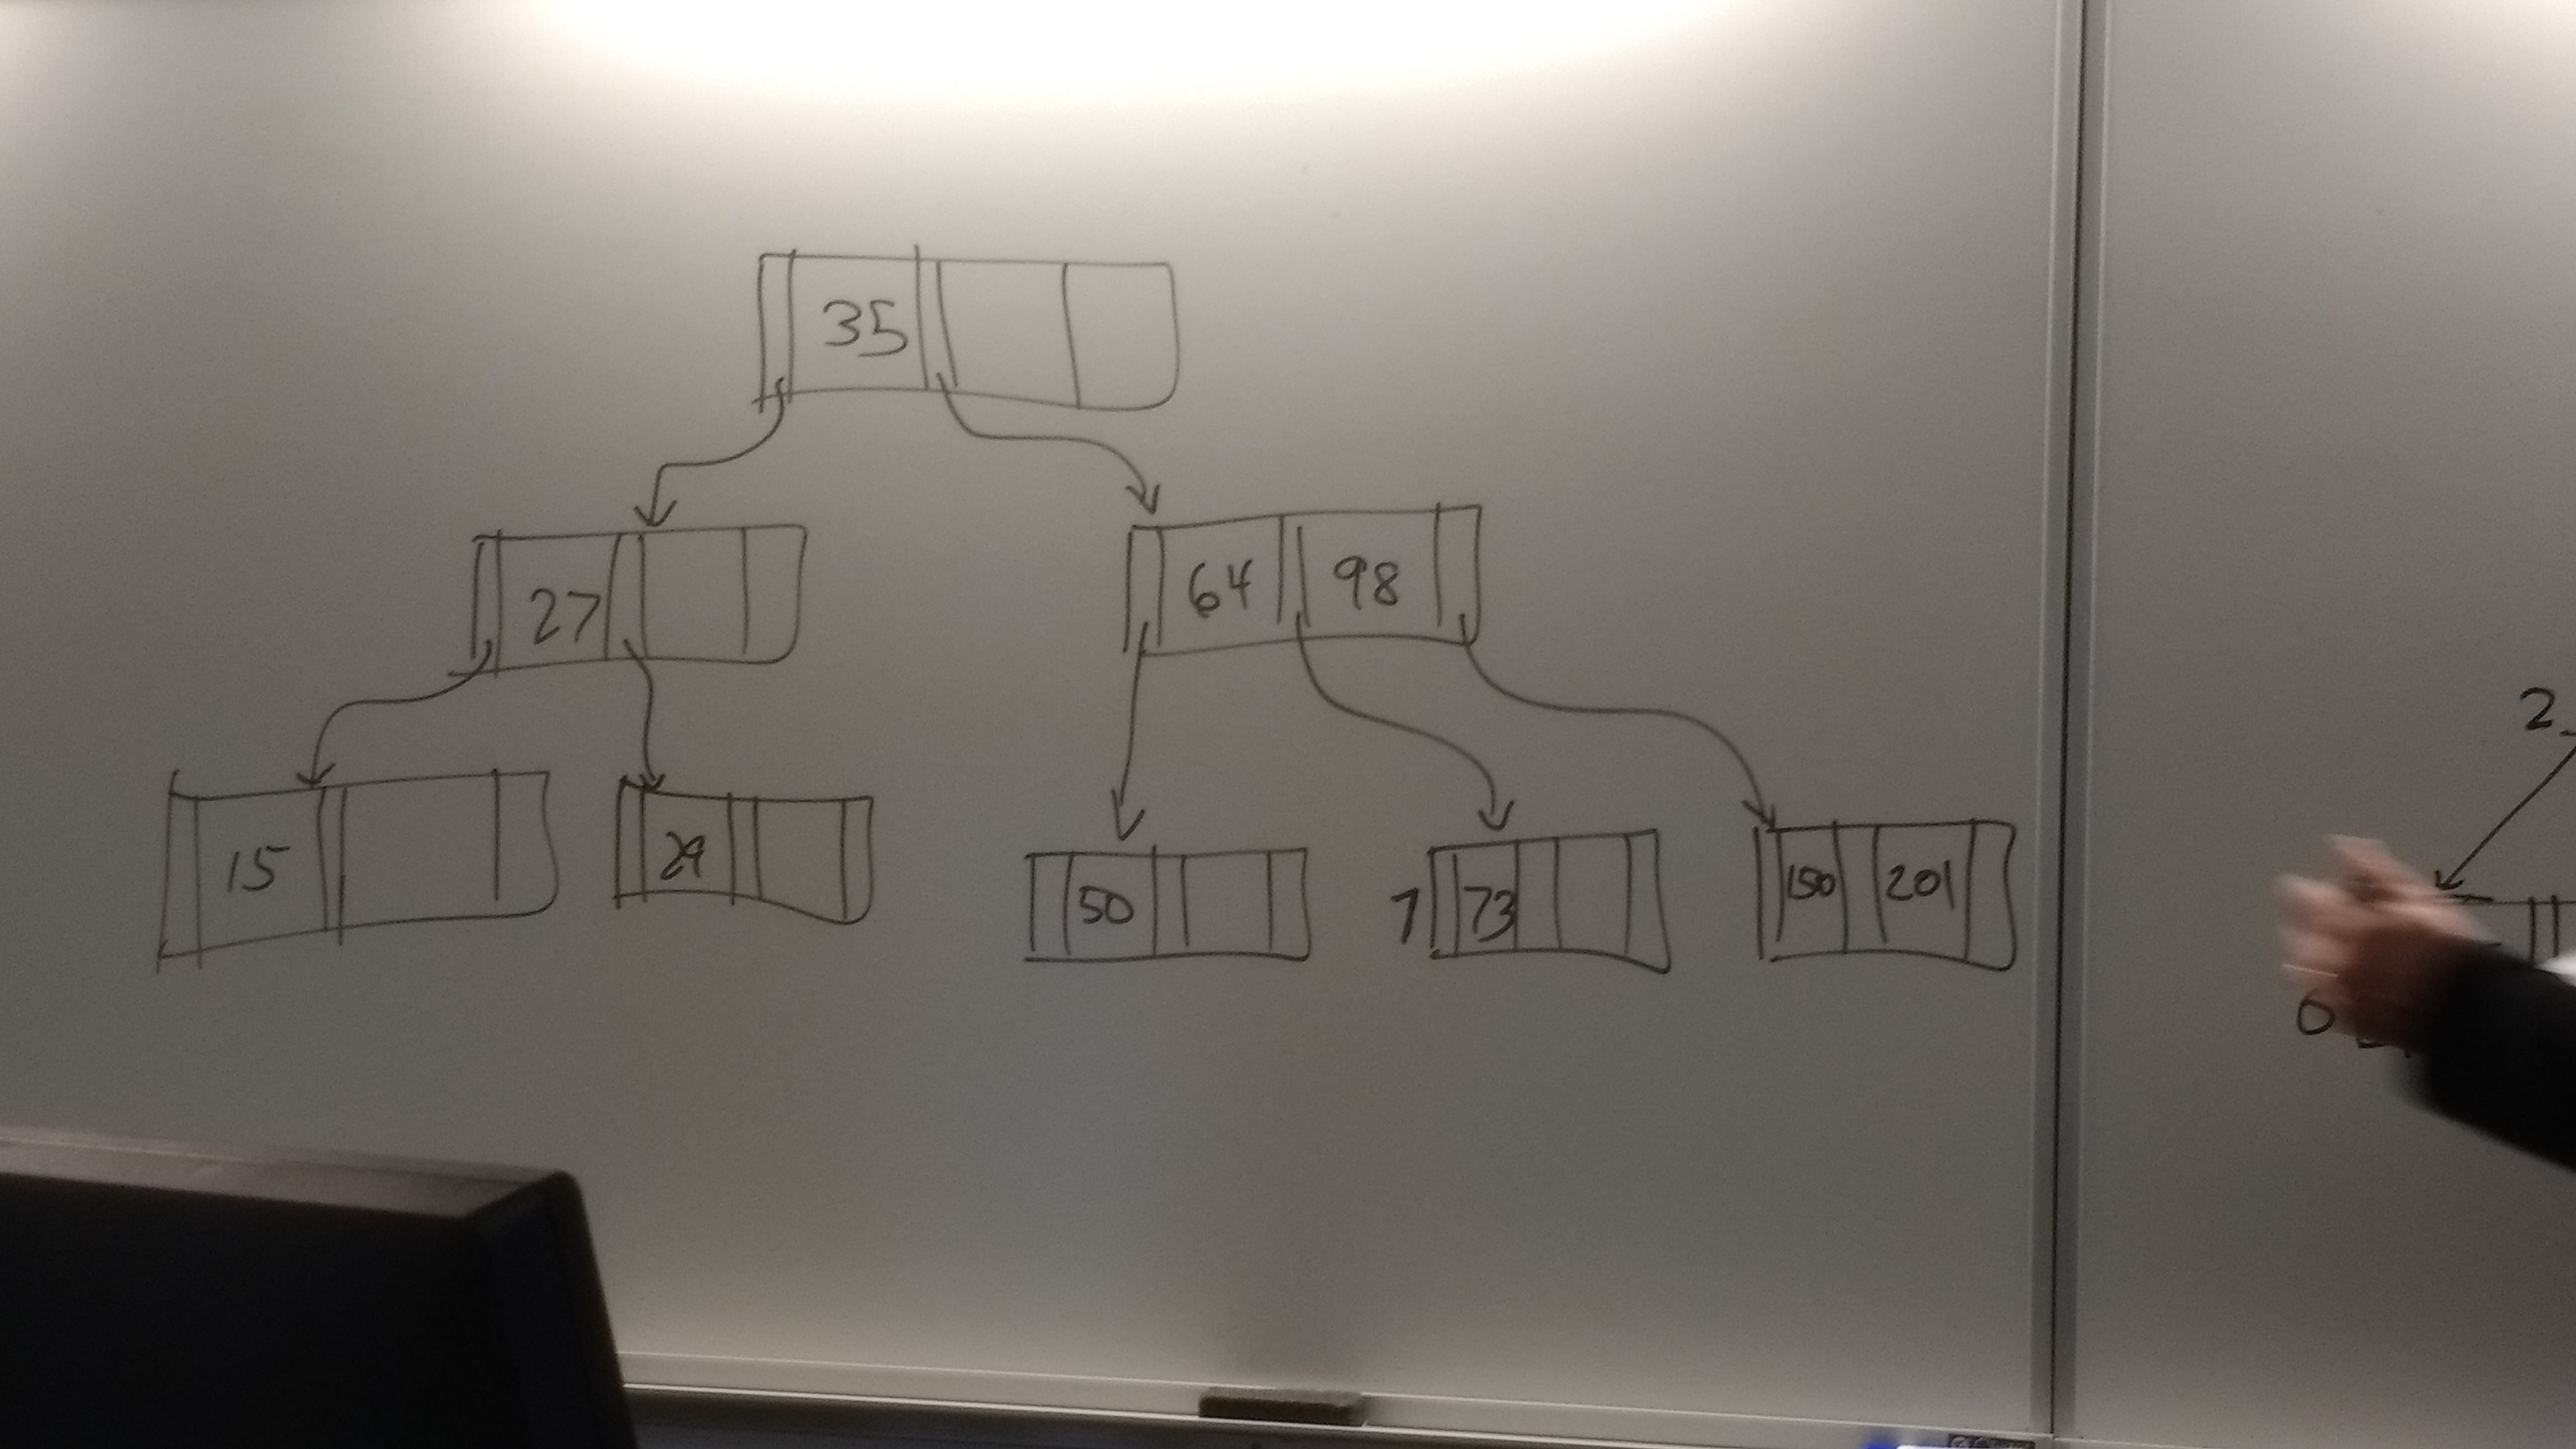 35
27
64 98
2
15
29
50
7 73
150 201
0